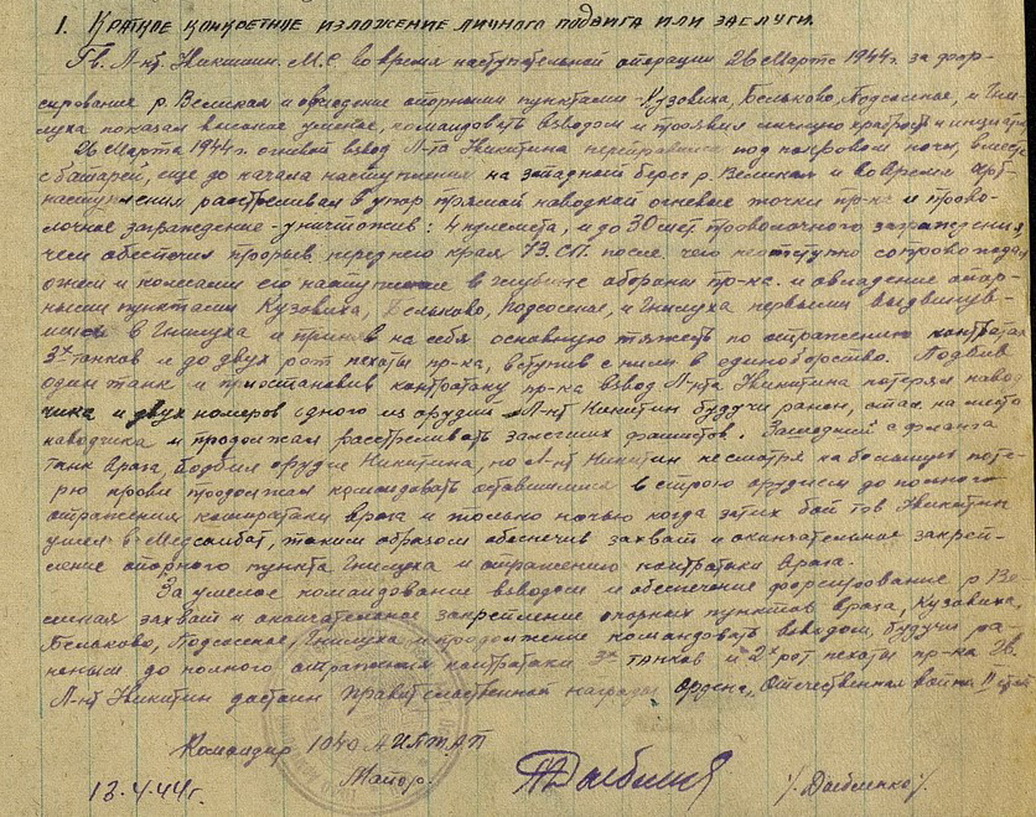 I. Краткое конкретное изложение личного подвига или заслуги.
Гв. Л-нт. Никитин. М.С во время наступательной операции 26 Марта 1944г. за фор-
сирование р. Великая и овладение опорными пунктами - Кузовиха, Бельково, Подсосное, и Гни-
луха показал высокое умение, командовать взводом и проявил личную храбрость и инициатив
26 Марта 1944г. огневой взвод Л-та Никитина переправился под покровом ночи, вместе
с батареей, еще до начала наступления на западный берег р. Великая и во время арт-
наступления расстреливал в упор прямой наводкой огневые точки пр-ка и прово-
лочное заграждение - уничтожив: 4 пулемета, и до 30 мет. проволочного заграждения,
чем обеспечил прорыв переднего края 73 СП. после чего неотступно сопровождал
огнем и колесами его наступление в глубине обороны пр-ка. и овладение опор-
ными пунктами Кузовиха, Бельково, Подсосное, и Гнилуха первыми выдвинув-
шись в Гнилуха и приняв на себя основную тяжесть по отражению контратак
3х танков и до двух рот пехоты пр-ка, вступив с ними в единоборство. Подбив
один танк и приостановив контратаку пр-ка взвод Л-нта Никитина потерял навод
чика и двух номеров одного из орудий Л-нт Никитин будучи ранен, стал на место
наводчика и продолжал расстреливать залегших фашистов. Зашедший с фланга
танк врага, подбил орудие Никитина, но Л-нт Никитин несмотря на большую поте-
рю крови продолжал командовать оставшимся в строю орудием до полного
отражения контратаки врага и только ночью когда затих бой тов Никитин
ушел в Медсанбат, таким образом обеспечив захват и окончательное закреп-
ление опорного пункта Гнилуха и отражению контратаки врага.
За умелое командование взводом и обеспечение форсирование р. Ве
ликая захват и окончательное закрепление опорных пунктов врага, Кузовиха,
Бельково, Подсосное, Гнилуха и продолжение командовать взводом, будучи ра-
неным до полного отражения контратаки 3х танков и 2х рот пехоты пр-ка Гв.
Л-нт Никитин достоин правительственной награды ордена, Отечественная война II степ
Командир 1040 АИПТАП
Майор.
13.4.44г.